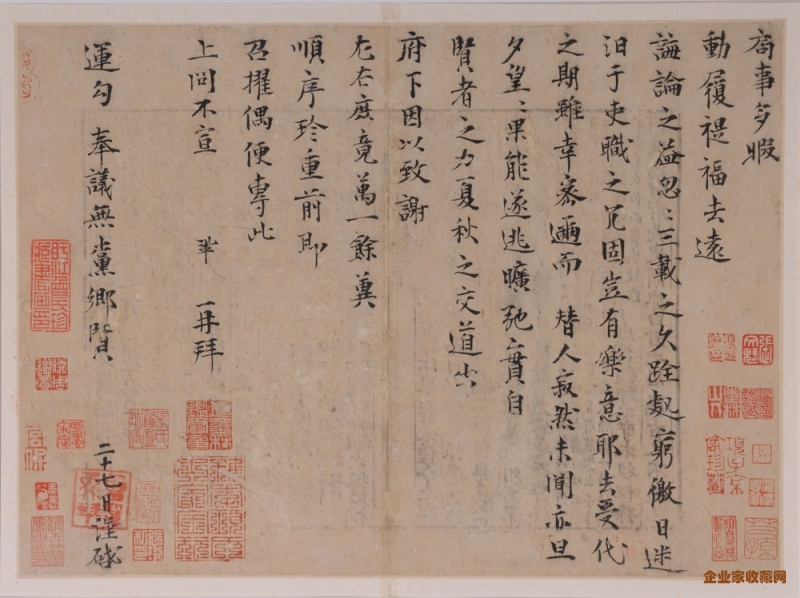 局事多暇
動履禔福去遠
誨論之益忽〻三載之久跧處窮徼日迷
汨于吏職之冗固豈有樂意耶去受代
之期雖幸密邇而替人寂然未聞亦旦
夕望〻果能遂逃曠弛實自
賢者之力夏秋之交道出
府下因以致謝
左右庶竟萬一餘冀
順序珍重前即
召擢偶便專此
上問不宣 鞏 再拜
運勾奉議無黨鄉賢
二十七日謹啟
企业家收藏网